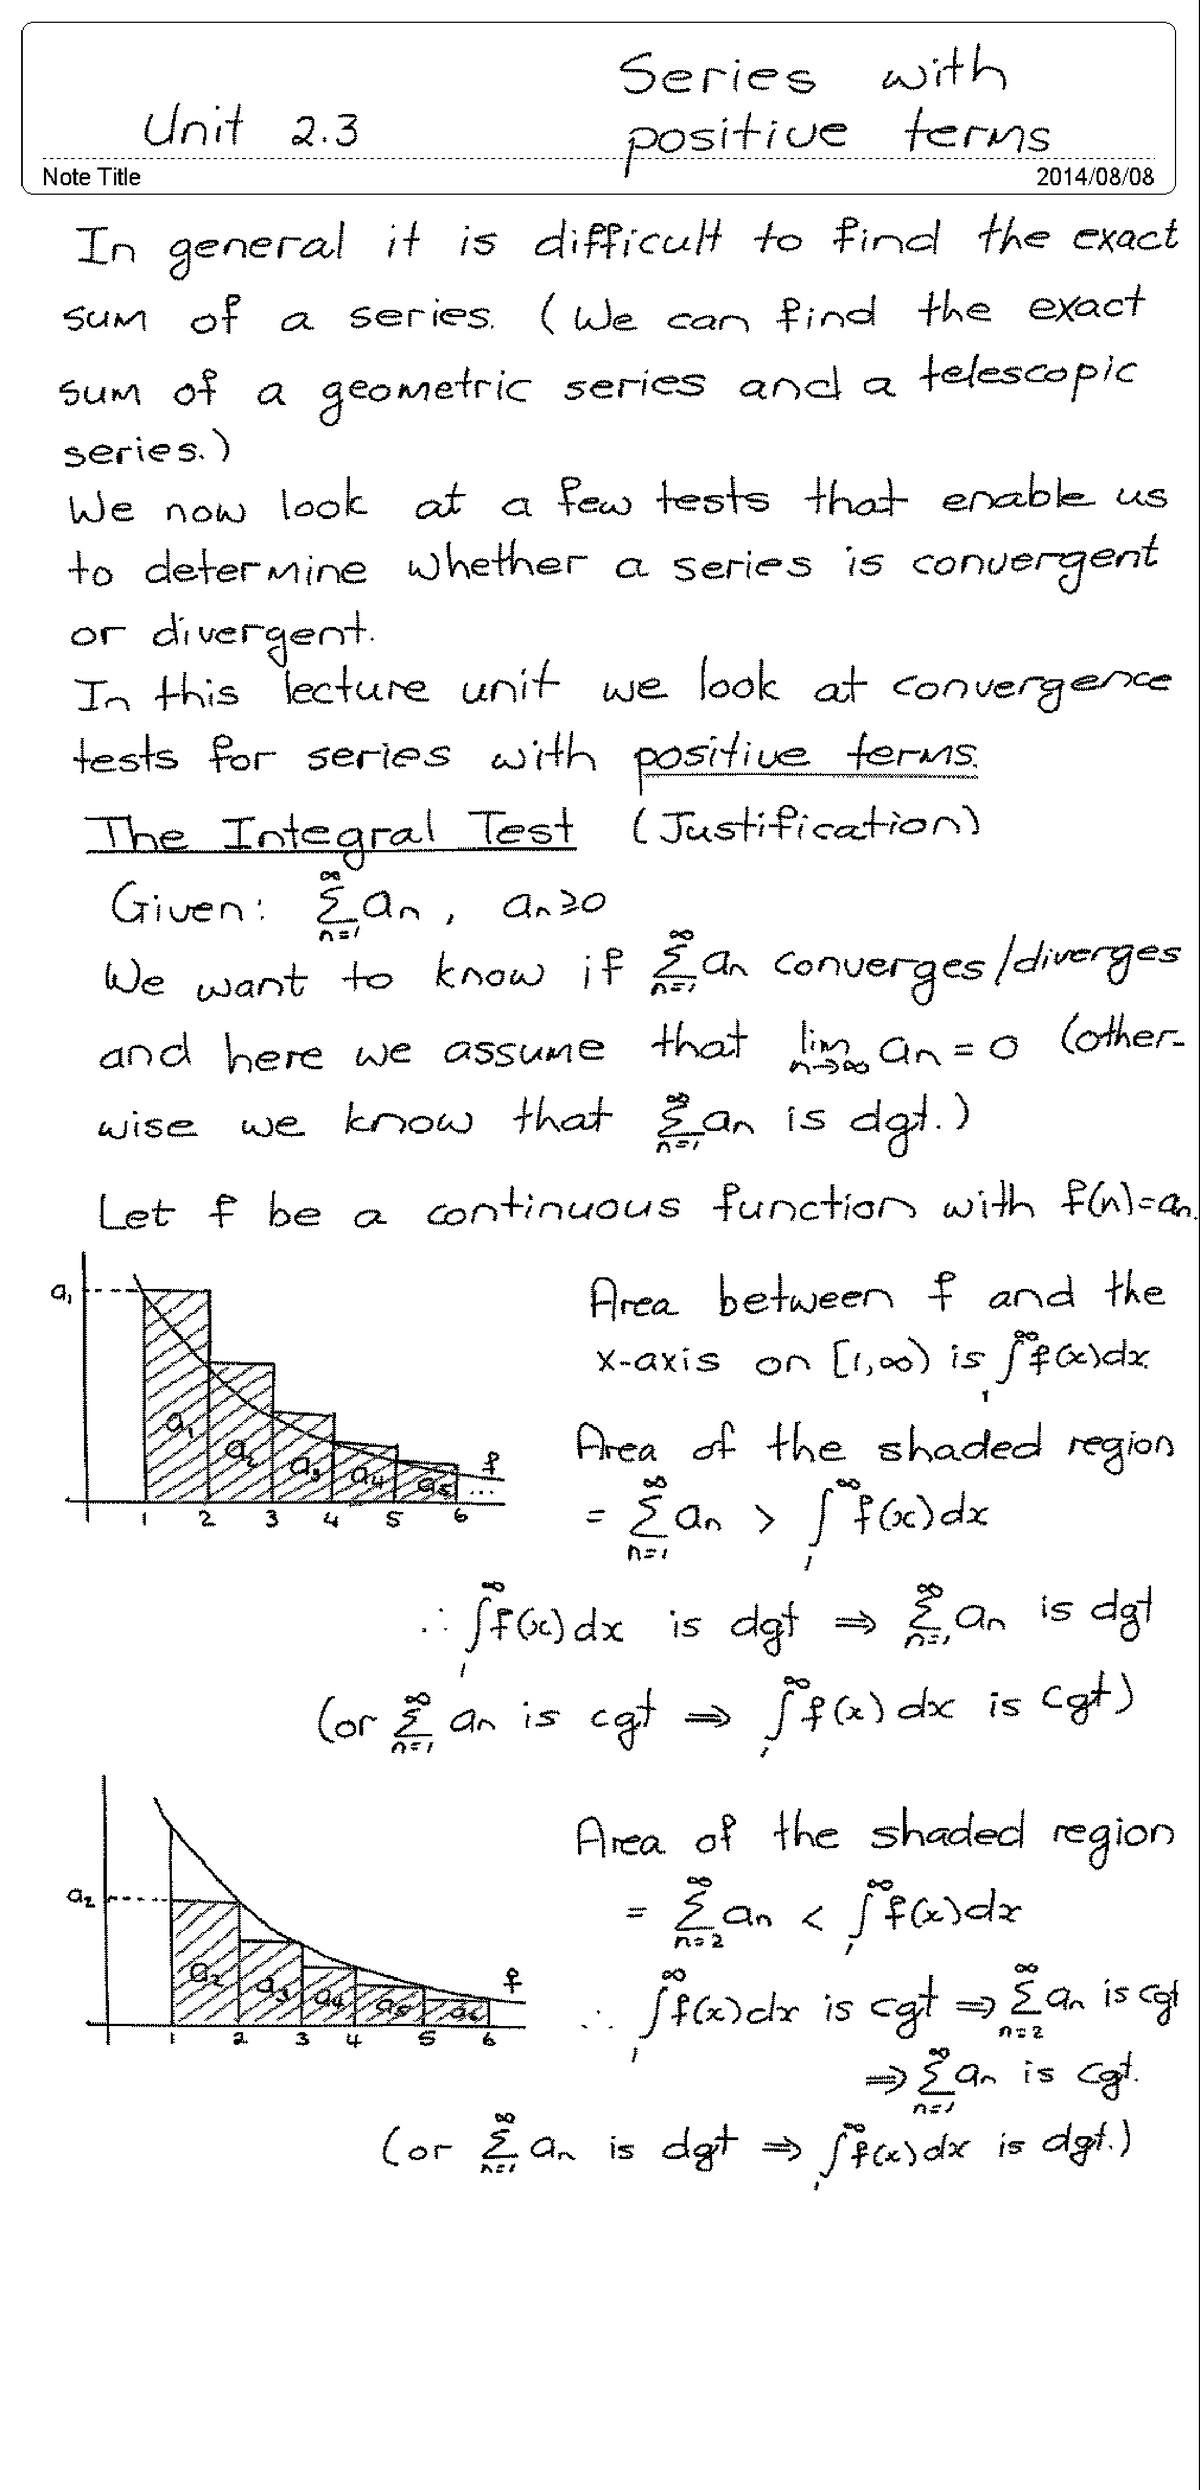 Series with
Unit 2.3 positive terms
Note Title 2014/08/08
In general it is difficult to find the exact
sum of a series. (We can find the exact
sum of a geometric series and a telescopic
series.)
We now look at a few tests that enable us
to determine whether a series is convergent
or divergent.
In this lecture unit we look at convergence
tests for series with positive terms.
The Integral Test (Justification)
Given: ∑_{n=1}^∞ aₙ, aₙ ≥ 0
We want to know if ∑_{n=1}^∞ aₙ converges/diverges
and here we assume that lim_{n→∞} aₙ = 0 (other-
wise we know that ∑_{n=1}^∞ aₙ is dgt.)
Let f be a continuous function with f(n)=aₙ.
a₁
a₁ a₂ a₃ a₄ a₅ f ...
1 2 3 4 5 6
Area between f and the
x-axis on [1,∞) is ∫₁^∞ f(x)dx.
Area of the shaded region
= ∑_{n=1}^∞ aₙ > ∫₁^∞ f(x)dx
∴ ∫₁^∞ f(x)dx is dgt ⇒ ∑_{n=1}^∞ aₙ is dgt
(or ∑_{n=1}^∞ aₙ is cgt ⇒ ∫₁^∞ f(x)dx is cgt)
a₂
a₂ a₃ a₄ a₅ a₆ f
1 2 3 4 5 6
Area of the shaded region
= ∑_{n=2}^∞ aₙ < ∫₁^∞ f(x)dx
∴ ∫₁^∞ f(x)dx is cgt ⇒ ∑_{n=2}^∞ aₙ is cgt
⇒ ∑_{n=1}^∞ aₙ is cgt.
(or ∑_{n=1}^∞ aₙ is dgt ⇒ ∫₁^∞ f(x)dx is dgt.)